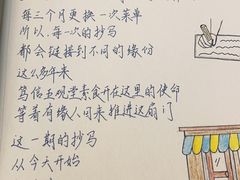 每三个月更换一次菜单
所以,每一次的抄写
都会链接到不同的缘份
这么多年来
笃信五观堂素食开在这里的使命
等着有缘人回来推进这扇门
这一期的抄写
从今天开始